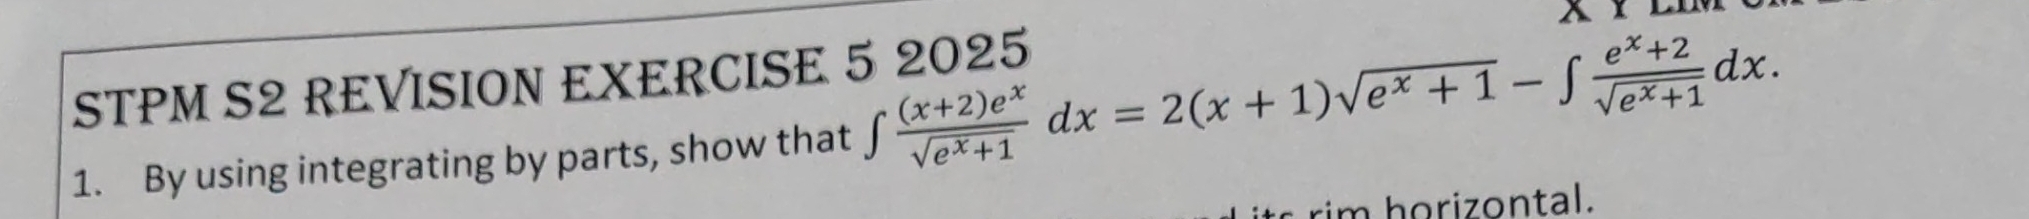 STPM S2 REVISION EXERCISE 5 2025
1. By using integrating by parts, show that ∫ (x+2)eˣ / √(eˣ+1) dx = 2(x + 1)√(eˣ + 1) − ∫ (eˣ+2) / √(eˣ+1) dx.
rim horizontal.